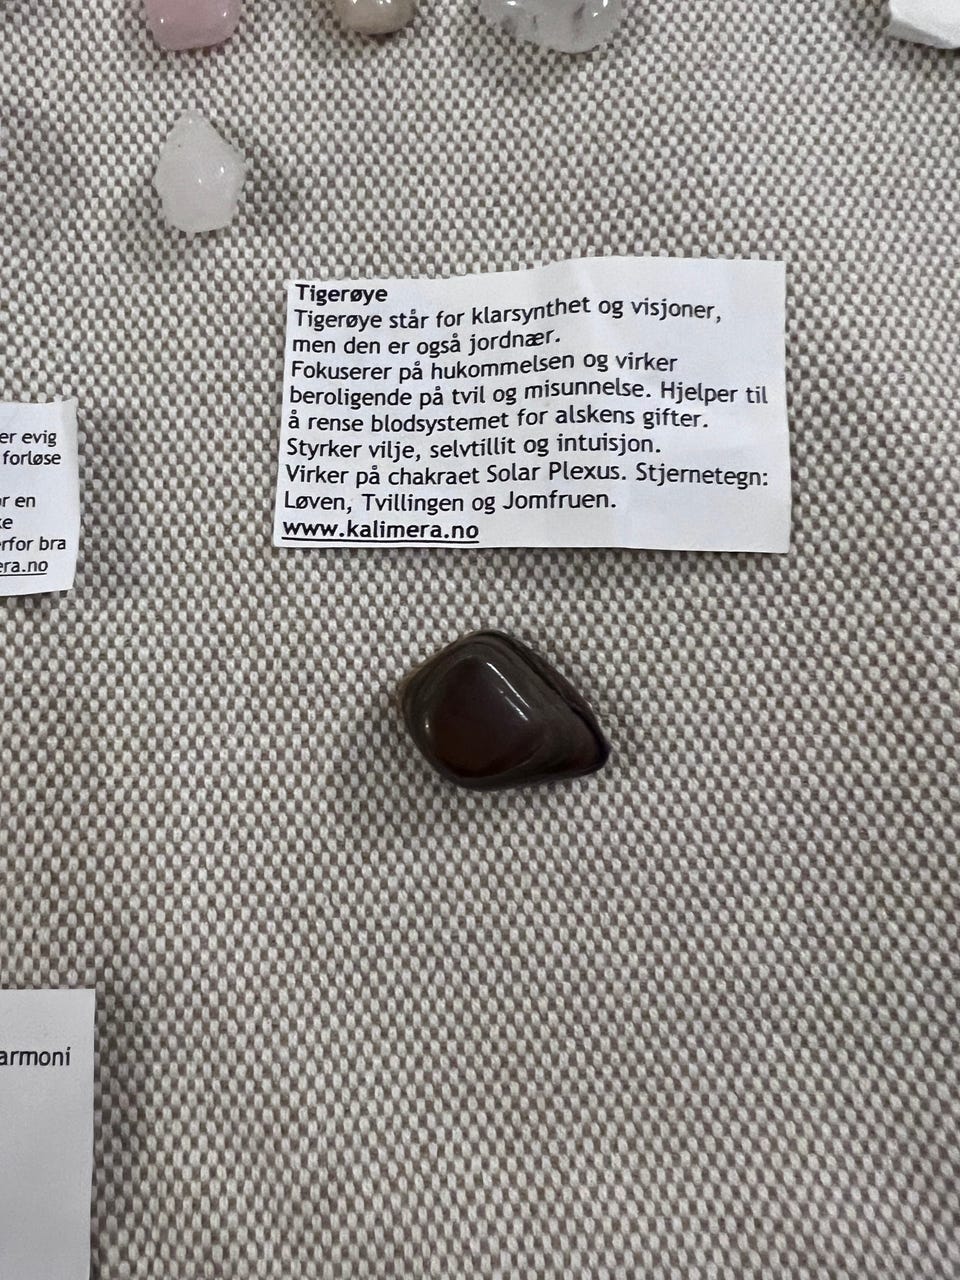 Tigerøye
Tigerøye står for klarsynthet og visjoner,
men den er også jordnær.
Fokuserer på hukommelsen og virker
beroligende på tvil og misunnelse. Hjelper til
å rense blodsystemet for alskens gifter.
Styrker vilje, selvtillit og intuisjon.
Virker på chakraet Solar Plexus. Stjernetegn:
Løven, Tvillingen og Jomfruen.
www.kalimera.no
er evig
forløse
en
rfor bra
era.no
armoni